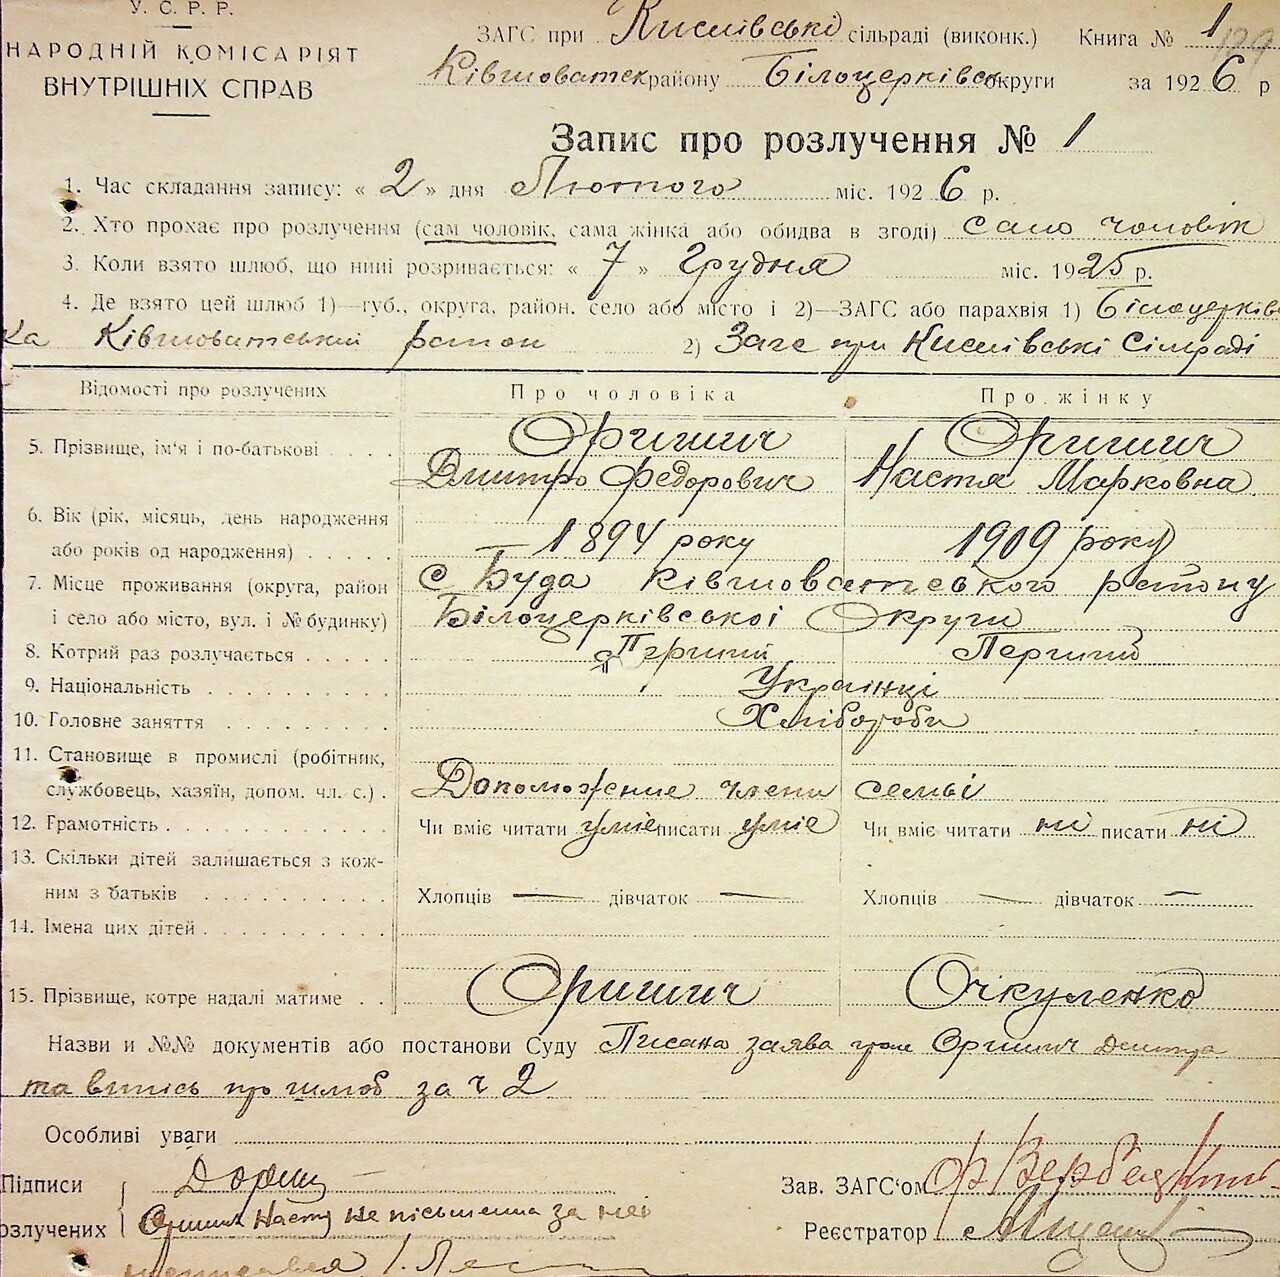 У. С. Р. Р.
НАРОДНІЙ КОМІСАРІЯТ
ВНУТРІШНІХ СПРАВ
ЗАГС при Кислівські сільраді (виконк.) Книга № 1
129
Ківшоватск району Білоцерківс округи за 1926 р
Запис про розлучення № 1
1. Час складання запису: « 2 » дня Лютого міс. 1926 р.
2. Хто прохає про розлучення (сам чоловік, сама жінка або обидва в згоді) само чоловік
3. Коли взято шлюб, що нині розривається: « 7 » Грудня міс. 1925 р.
4. Де взято цей шлюб 1)—губ., округа, район, село або місто і 2)—ЗАГС або парахвія 1) Білоцерків
ка Ківшоватський район 2) Загс при Кислівські Сілраді
Відомості про розлучених Про чоловіка Про жінку
5. Прізвище, ім'я і по-батькові Оришич Оришич
Дмитро Федорович Настя Марковна
6. Вік (рік, місяць, день народження
або років од народження) 1894 року 1909 року
7. Місце проживання (округа, район с Буда Ківшоватського району
і село або місто, вул. і № будинку) Білоцерківськоі Округи
8. Котрий раз розлучається Перший Перший
9. Національність Украінці
10. Головне заняття Хлібороби
11. Становище в промислі (робітник,
службовець, хазяїн, допом. чл. с.) Допоможение члени семьі
12. Грамотність Чи вміє читати уміє писати уміє Чи вміє читати ні писати ні
13. Скільки дітей залишається з кож-
ним з батьків Хлопців — дівчаток — Хлопців — дівчаток —
14. Імена цих дітей
15. Прізвище, котре надалі матиме Оришич Очкуленко
Назви и №№ документів або постанови Суду Писана заява гром Оришич Дмитра
та випісь про шлюб за ч 2
Особливі уваги
Підписи
озлучених Оришич Насту не пісьменна за неі
Зав. ЗАГС'ом
Реєстратор